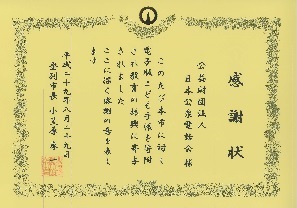 感謝状
公益財団法人
日本公衆電話会様
このたび本市に対く
電子版こども手帳を寄附
され教育の振興に寄与
されました
ここに深く感謝の意を表し
ます
平成二十九年八月二十九日
登別市長 小笠原春一